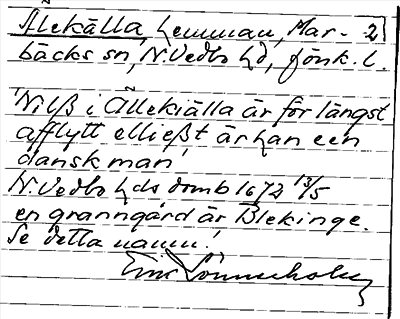 Älekälla, hemman, Mar- 2
bäcks sn, N. Vedbo hd, Jönk. l.
"Nilß i Ällekiälla är för längst
afflytt elließt är han een
dansk man"
N. Vedbo hds domb 1672 13/5
en granngård är Blekinge.
Se detta namn!
Erik Lönnerholm